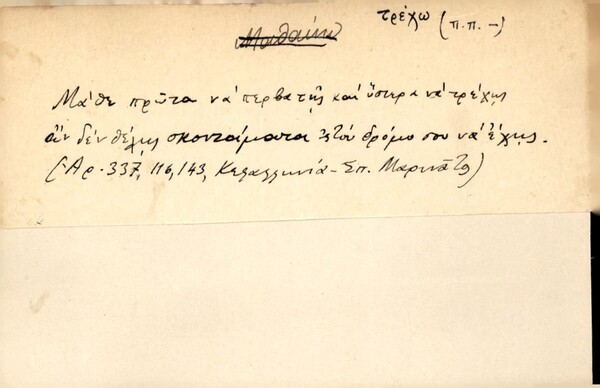 Μαθαίνω
τρέχω (π.π. -)
Μάθε πρῶτα νά περβατῇς καί ὕστερα νά τρέχῃς
ἄν δέν θέλῃς σκοντάματα στόν δρόμο σου νά ἔχῃς.
(Ἀρ. 337, 116, 143, Κεφαλληνία - Σπ. Μαρινᾶτος)